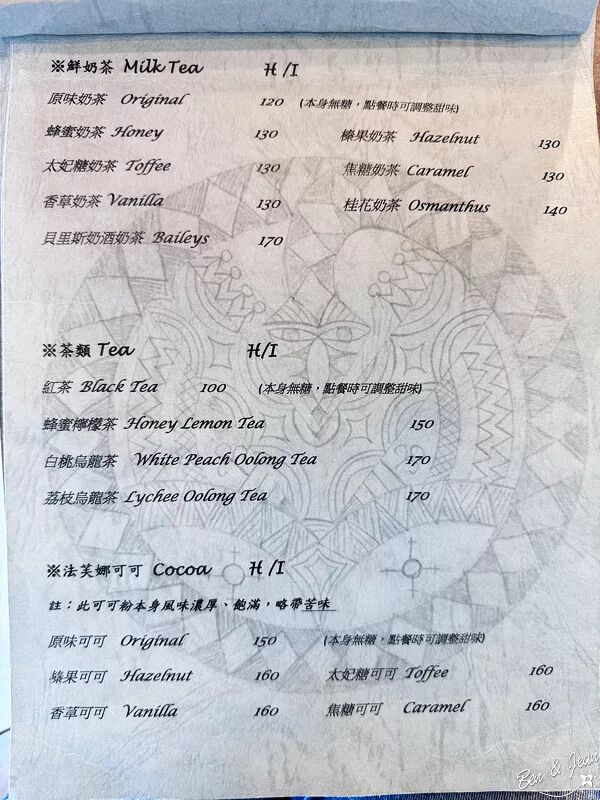 ※鮮奶茶 Milk Tea H/I
原味奶茶 Original 120 (本身無糖，點餐時可調整甜味)
蜂蜜奶茶 Honey 130
榛果奶茶 Hazelnut 130
太妃糖奶茶 Toffee 130
焦糖奶茶 Caramel 130
香草奶茶 Vanilla 130
桂花奶茶 Osmanthus 140
貝里斯奶酒奶茶 Baileys 170
※茶類 Tea H/I
紅茶 Black Tea 100 (本身無糖，點餐時可調整甜味)
蜂蜜檸檬茶 Honey Lemon Tea 150
白桃烏龍茶 White Peach Oolong Tea 170
荔枝烏龍茶 Lychee Oolong Tea 170
※法芙娜可可 Cocoa H/I
註：此可可粉本身風味濃厚、飽滿，略帶苦味
原味可可 Original 150 (本身無糖，點餐時可調整甜味)
榛果可可 Hazelnut 160
太妃糖可可 Toffee 160
香草可可 Vanilla 160
焦糖可可 Caramel 160
Ben & Jean